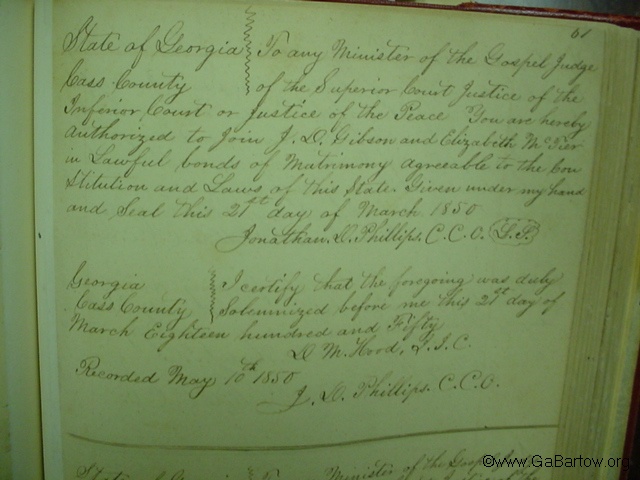 61
State of Georgia To any Minister of the Gospel Judge
Cass County of the Superior Court Justice of the
Inferior Court or Justice of the Peace You are hereby
authorized to Join J. D. Gibson and Elizabeth McTier
in Lawful bonds of Matrimony agreeable to the Con
stitution and Laws of this State. Given under my hand
and Seal this 21st day of March 1850
Jonathan. D. Phillips. C. C. O. L.S.
Georgia I certify that the foregoing was duly
Cass County Solemnized before me this 21st day of
March Eighteen hundred and Fifty
D M. Hood, J. I. C.
Recorded May 10th 1850
J. D. Phillips. C. C. O.
State of Georgia To any Minister of the Gospel
©www.GaBartow.org